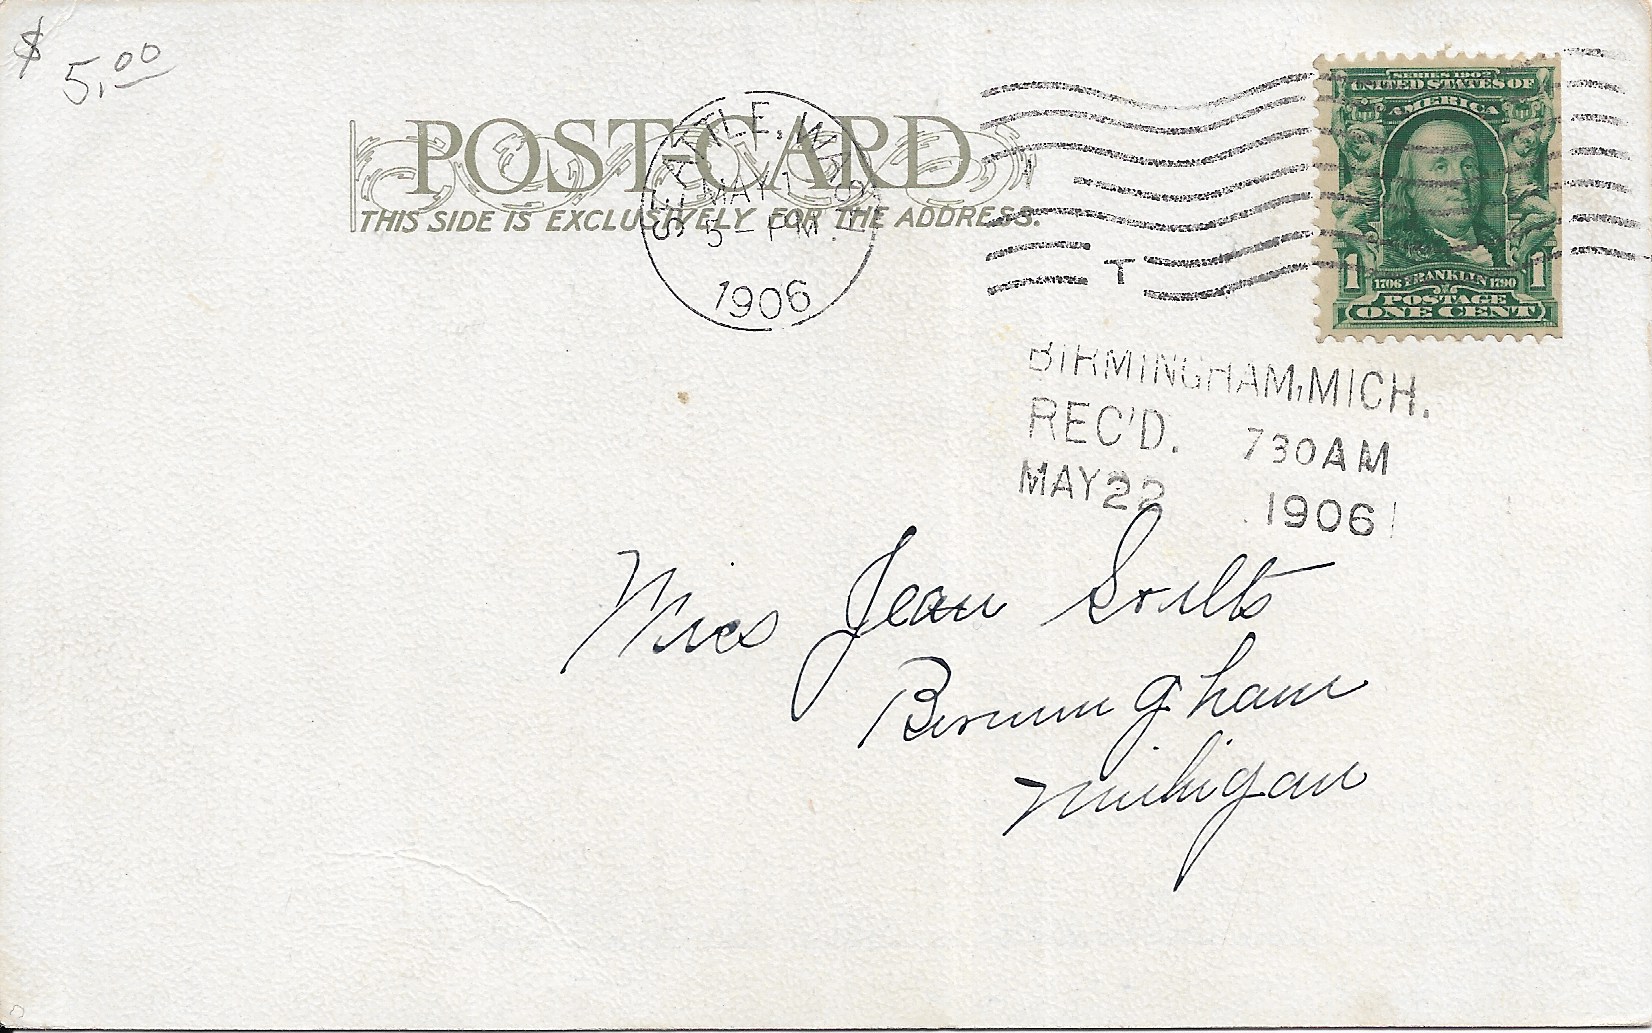 $ 5.00
POST-CARD
THIS SIDE IS EXCLUSIVELY FOR THE ADDRESS.
SEATTLE, WA
MAY
5 - PM
1906
T
SERIES 1902
UNITED STATES OF
AMERICA
1 1
1706 FRANKLIN 1790
POSTAGE
ONE CENT
BIRMINGHAM, MICH.
REC'D. 730AM
MAY 22 1906
Miss Jean
Birmingham
Michigan